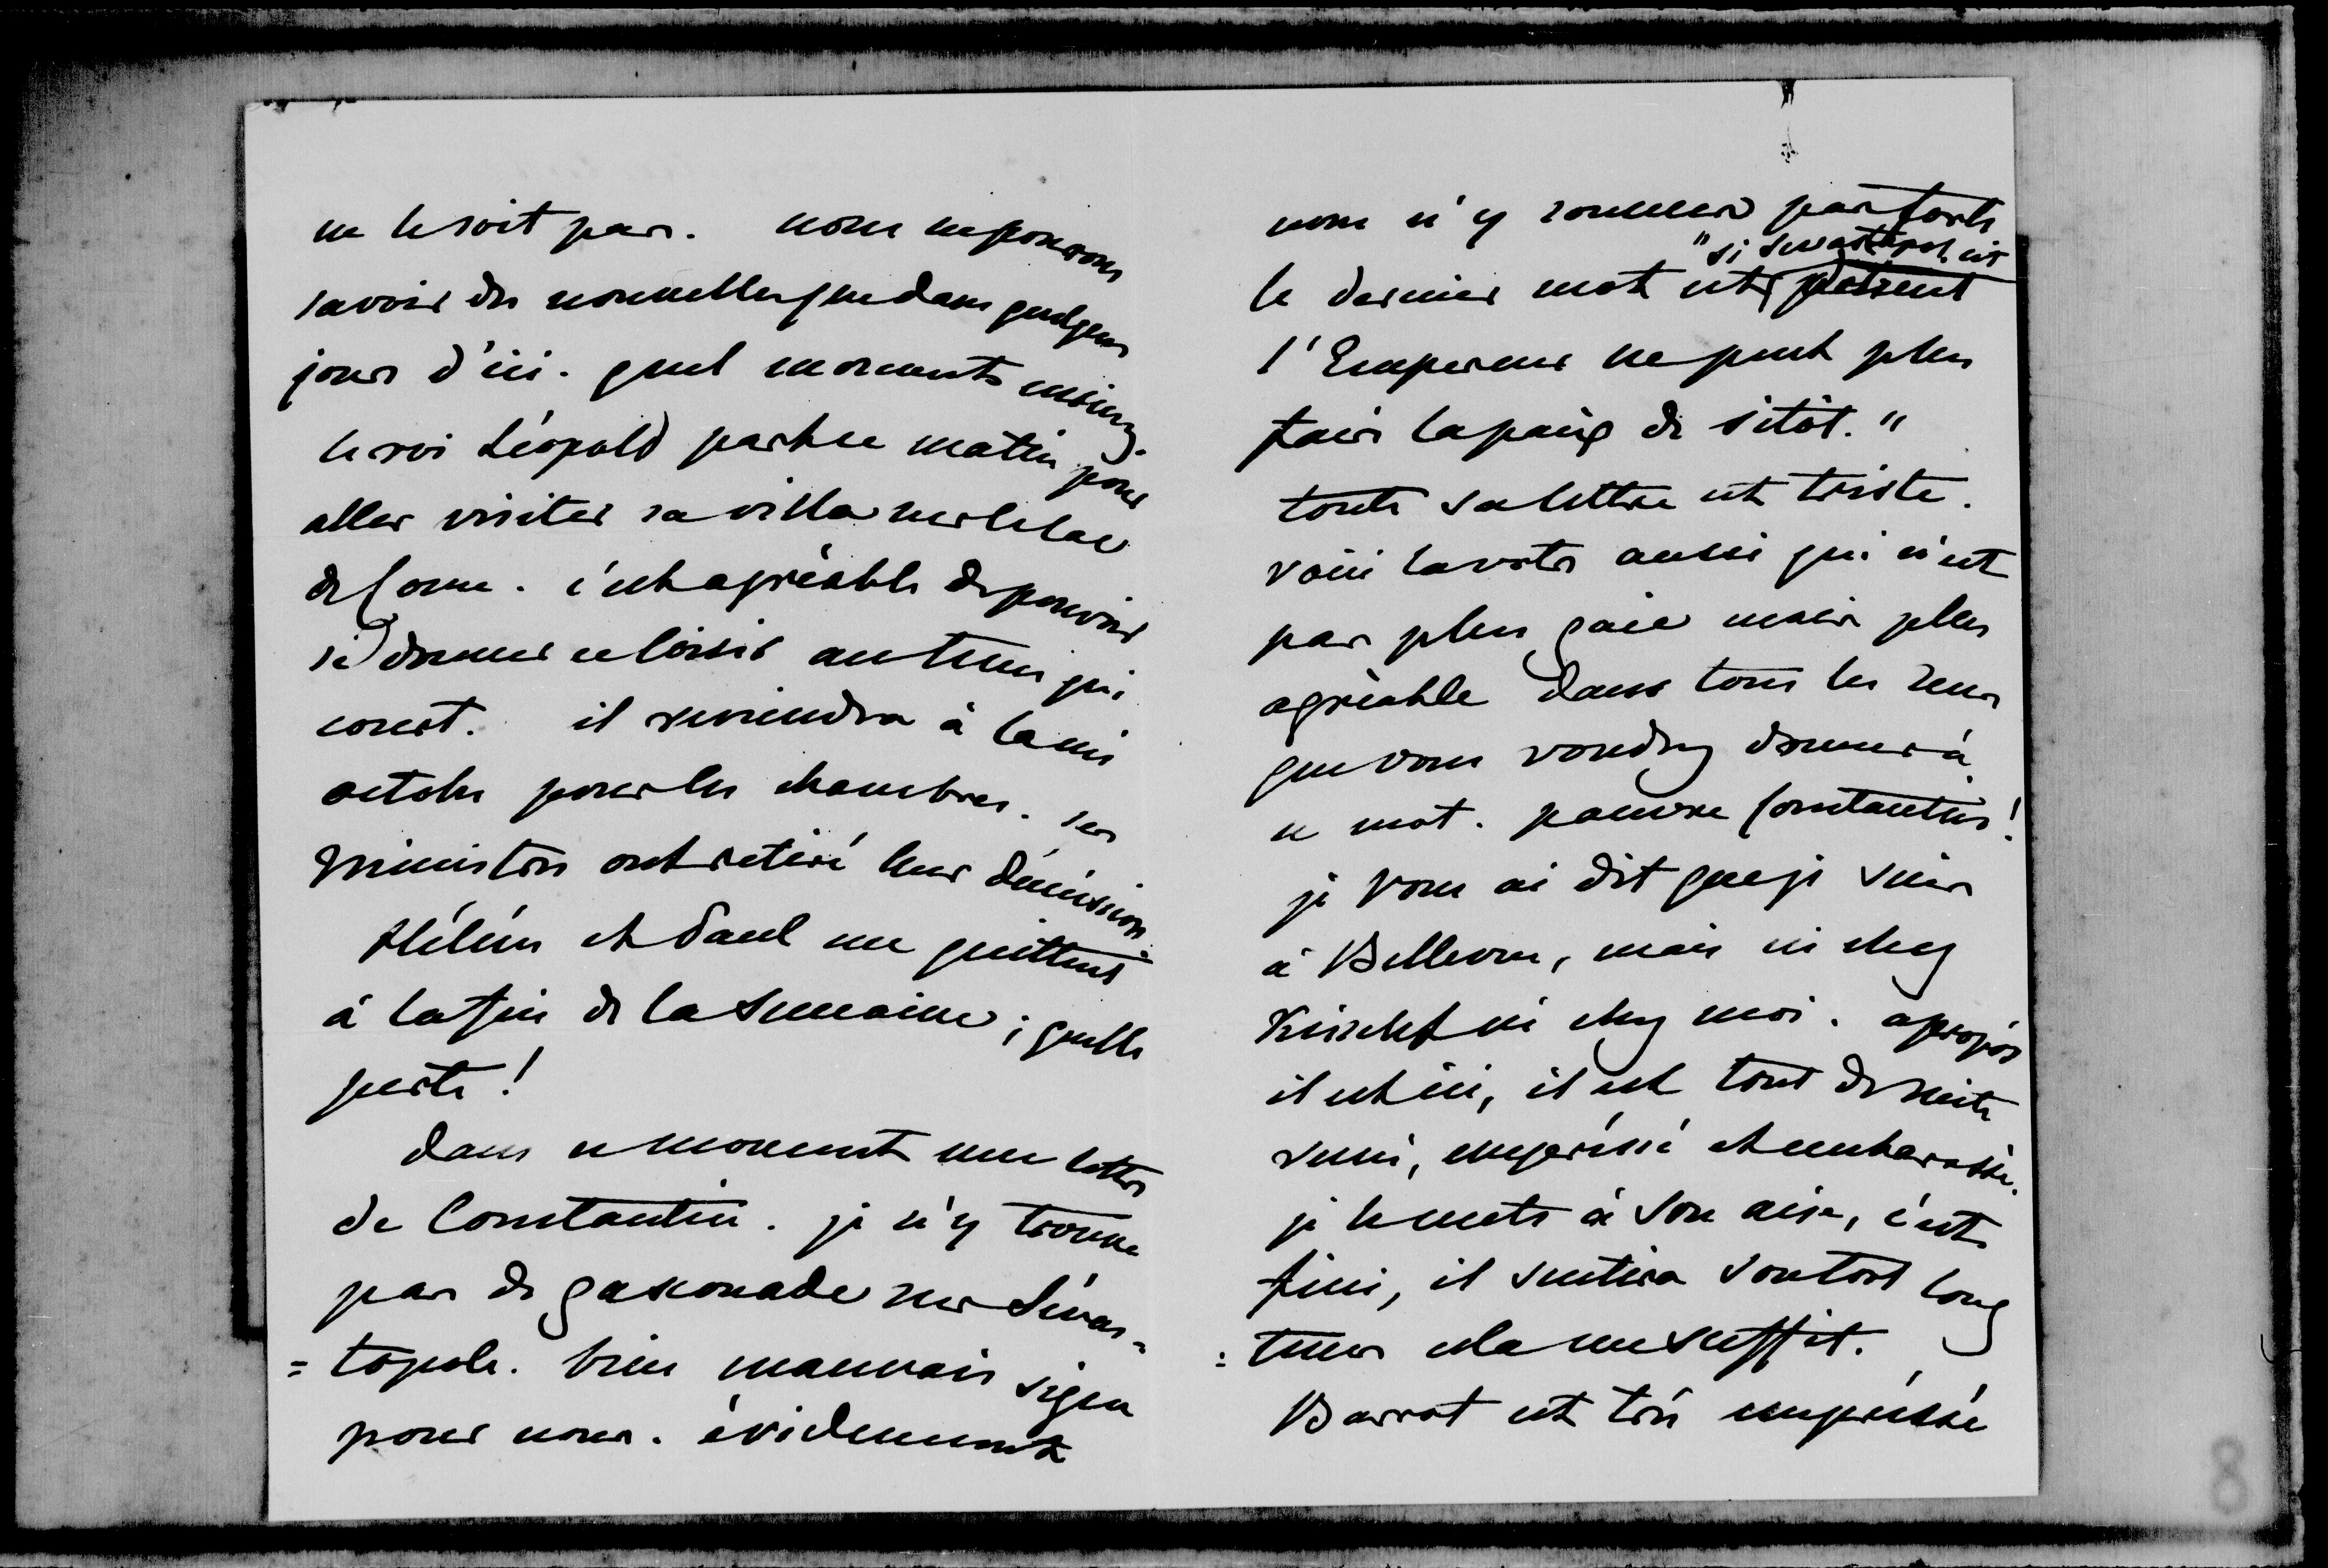 ne le soit pas. nous ne pouvons
savoir des nouvelles que dans quelques
jours d'ici. quel moments mieux.
le roi Léopold part ce matin pour
aller visiter sa villa sur le lac
de Come. c'est agréable de pouvoir
se donner ce loisir au tems qui
court. il reviendra à la mi
octobre pour les chambres. ses
Ministres ont retiré leur démission.
Hélène et Paul me quittent
à la fin de la semaine ; quelle
perte !
dans ce moment une lettre
de Constantin. je n'y trouve
pas de gasconade sur Sévas-
= topole. bien mauvais signe
pour nous. évidemment
nous n'y sommes pas forts
"si Sevastopol est
le dernier mot est
l'Empereur ne peut plus
faire la paix de sitôt."
toute sa lettre est triste.
voici la votre aussi qui n'est
pas plus gaie mais plus
agréable dans tous les sens
que vous voudrez donner à
ce mot. pauvre Constantin !
je vous ai dit que je suis
à Bellevue, mais ni chez
Kisseleff ni chez moi. apropos
il est ici, il est tout de suite
venu, empressé et embarassé.
je le mets à son aise, c'est
fini, il sentira son tort long
= tems cela me suffit.
Barrot est très empressé